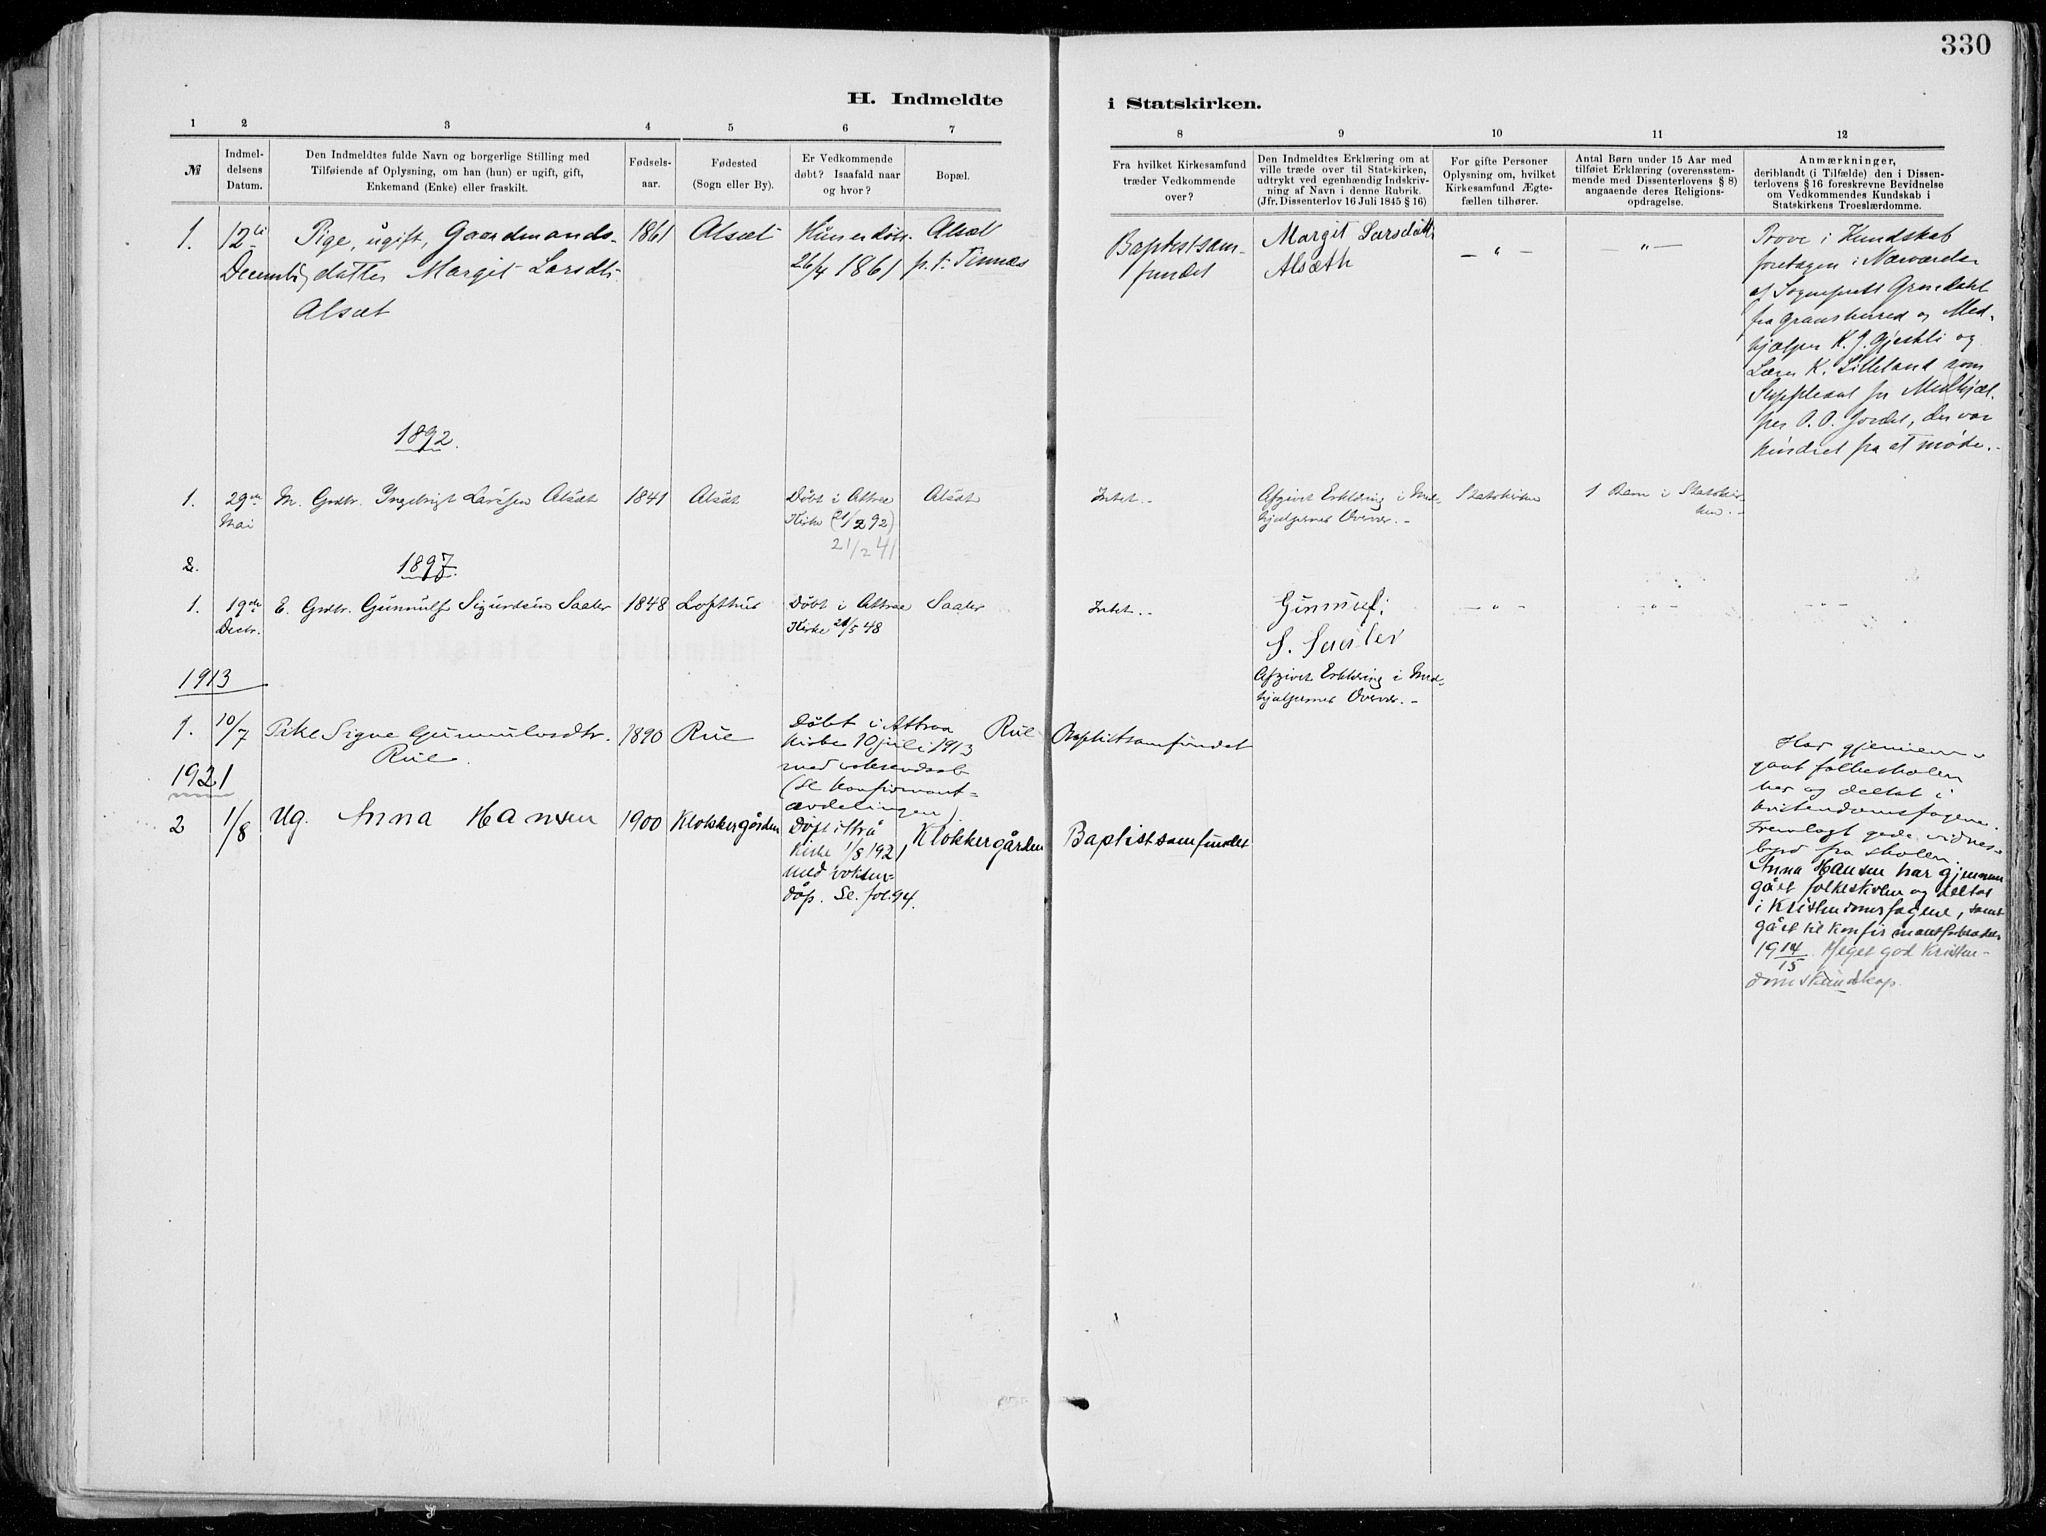 330
H. Indmeldte i Statskirken.
1 2 3 4 5 6 7 8 9 10 11 12
№
Indmel-
delsens
Datum.
Den Indmeldtes fulde Navn og borgerlige Stilling med
Tilføiende af Oplysning, om han (hun) er ugift, gift,
Enkemand (Enke) eller fraskilt.
Fødsels-
aar.
Fødested
(Sogn eller By).
Er Vedkommende
døbt? Isaafald naar
og hvor?
Bopæl.
Fra hvilket Kirkesamfund
træder Vedkommende
over?
Den Indmeldtes Erklæring om at
ville træde over til Statskirken,
udtrykt ved egenhændig Indskriv-
ning af Navn i denne Rubrik.
(Jfr. Dissenterlov 16 Juli 1845 § 16)
For gifte Personer
Oplysning om, hvilket
Kirkesamfund Ægte-
fællen tilhører.
Antal Børn under 15 Aar med
tilføiet Erklæring (overensstem-
mende med Dissenterlovens § 8)
angaaende deres Religions-
opdragelse.
Anmærkninger,
deriblandt (i Tilfælde) den i Dissen-
terlovens § 16 foreskrevne Bevidnelse
om Vedkommendes Kundskab i
Statskirkens Troeslærdomme.
1.
12te
Decemb.
Pige, ugift, Gaardmands-
datter Margit Larsdt.
Alsæt
1861
Alsæt
Hun er døbt
26/4 1861
Alsæt
p. t. Tinnæs
Baptistsam-
fundet
Margit Larsdatt.
Alsæth
— " —
— " —
Prove i Kundskab
foretagen i Nærværelse
af Sognepræst Grøndahl
fra Gransherred og Med-
hjælper K. J. Gjestli og
Lærer K. Lilleland som
Suppleant for Medhjæl-
per O. O. Jordet, der var
hindret fra at møde.-
1892.
1.
29de
Mai
M. Grdbr. Ingebrigt Larssen Alsæt
1841
Alsæt
Døbt i Attraa
Kirke (21/2 92)
21/2 41
Alsæt
Intet.-
Afgivet Erklæring i Med-
hjælpernes Overvær.-
Statskirken
1 Barn i Statskir-
ken.-
2.
1897.
1.
19de
Decbr.
E. Grdbr. Gunnulf Sigurdsen Saaler
1848
Lofthus
Døbt i Attraa
Kirke 21/5 48
Saaler
Intet.-
Gunnulf
S. Saaler
Afgivet Erklæring i Med-
hjælpernes Overvær.-
— " —
— " —
— " —
1913
1.
10/7
Pike Signe Gunnulvsdtr.
Rue.
1890
Rue
Døbt i Attraa
kirke 10 juli 1913
med voksendaab
(Se konfirmant-
avdelingen).
Rue
Baptistsamfundet
Har gjennem-
gaat folkeskolen
her og deltat i
kristendomsfagene.
Fremlagt gode vidnes-
byrd fra skolen.
1921
2
1/8
Ug. Anna Hansen
1900
Klokkergården
Døpt i Atrå
kirke 1/8 1921
med voksen-
dåp. Se fol. 94.
Klokkergården
Baptistsamfundet
Anna Hansen har gjennem
gået folkeskolen og deltat
i kristendomsfagene, samt
gået til konfirmantforbredelse
1914/15. Meget god kristen-
domskundskap.